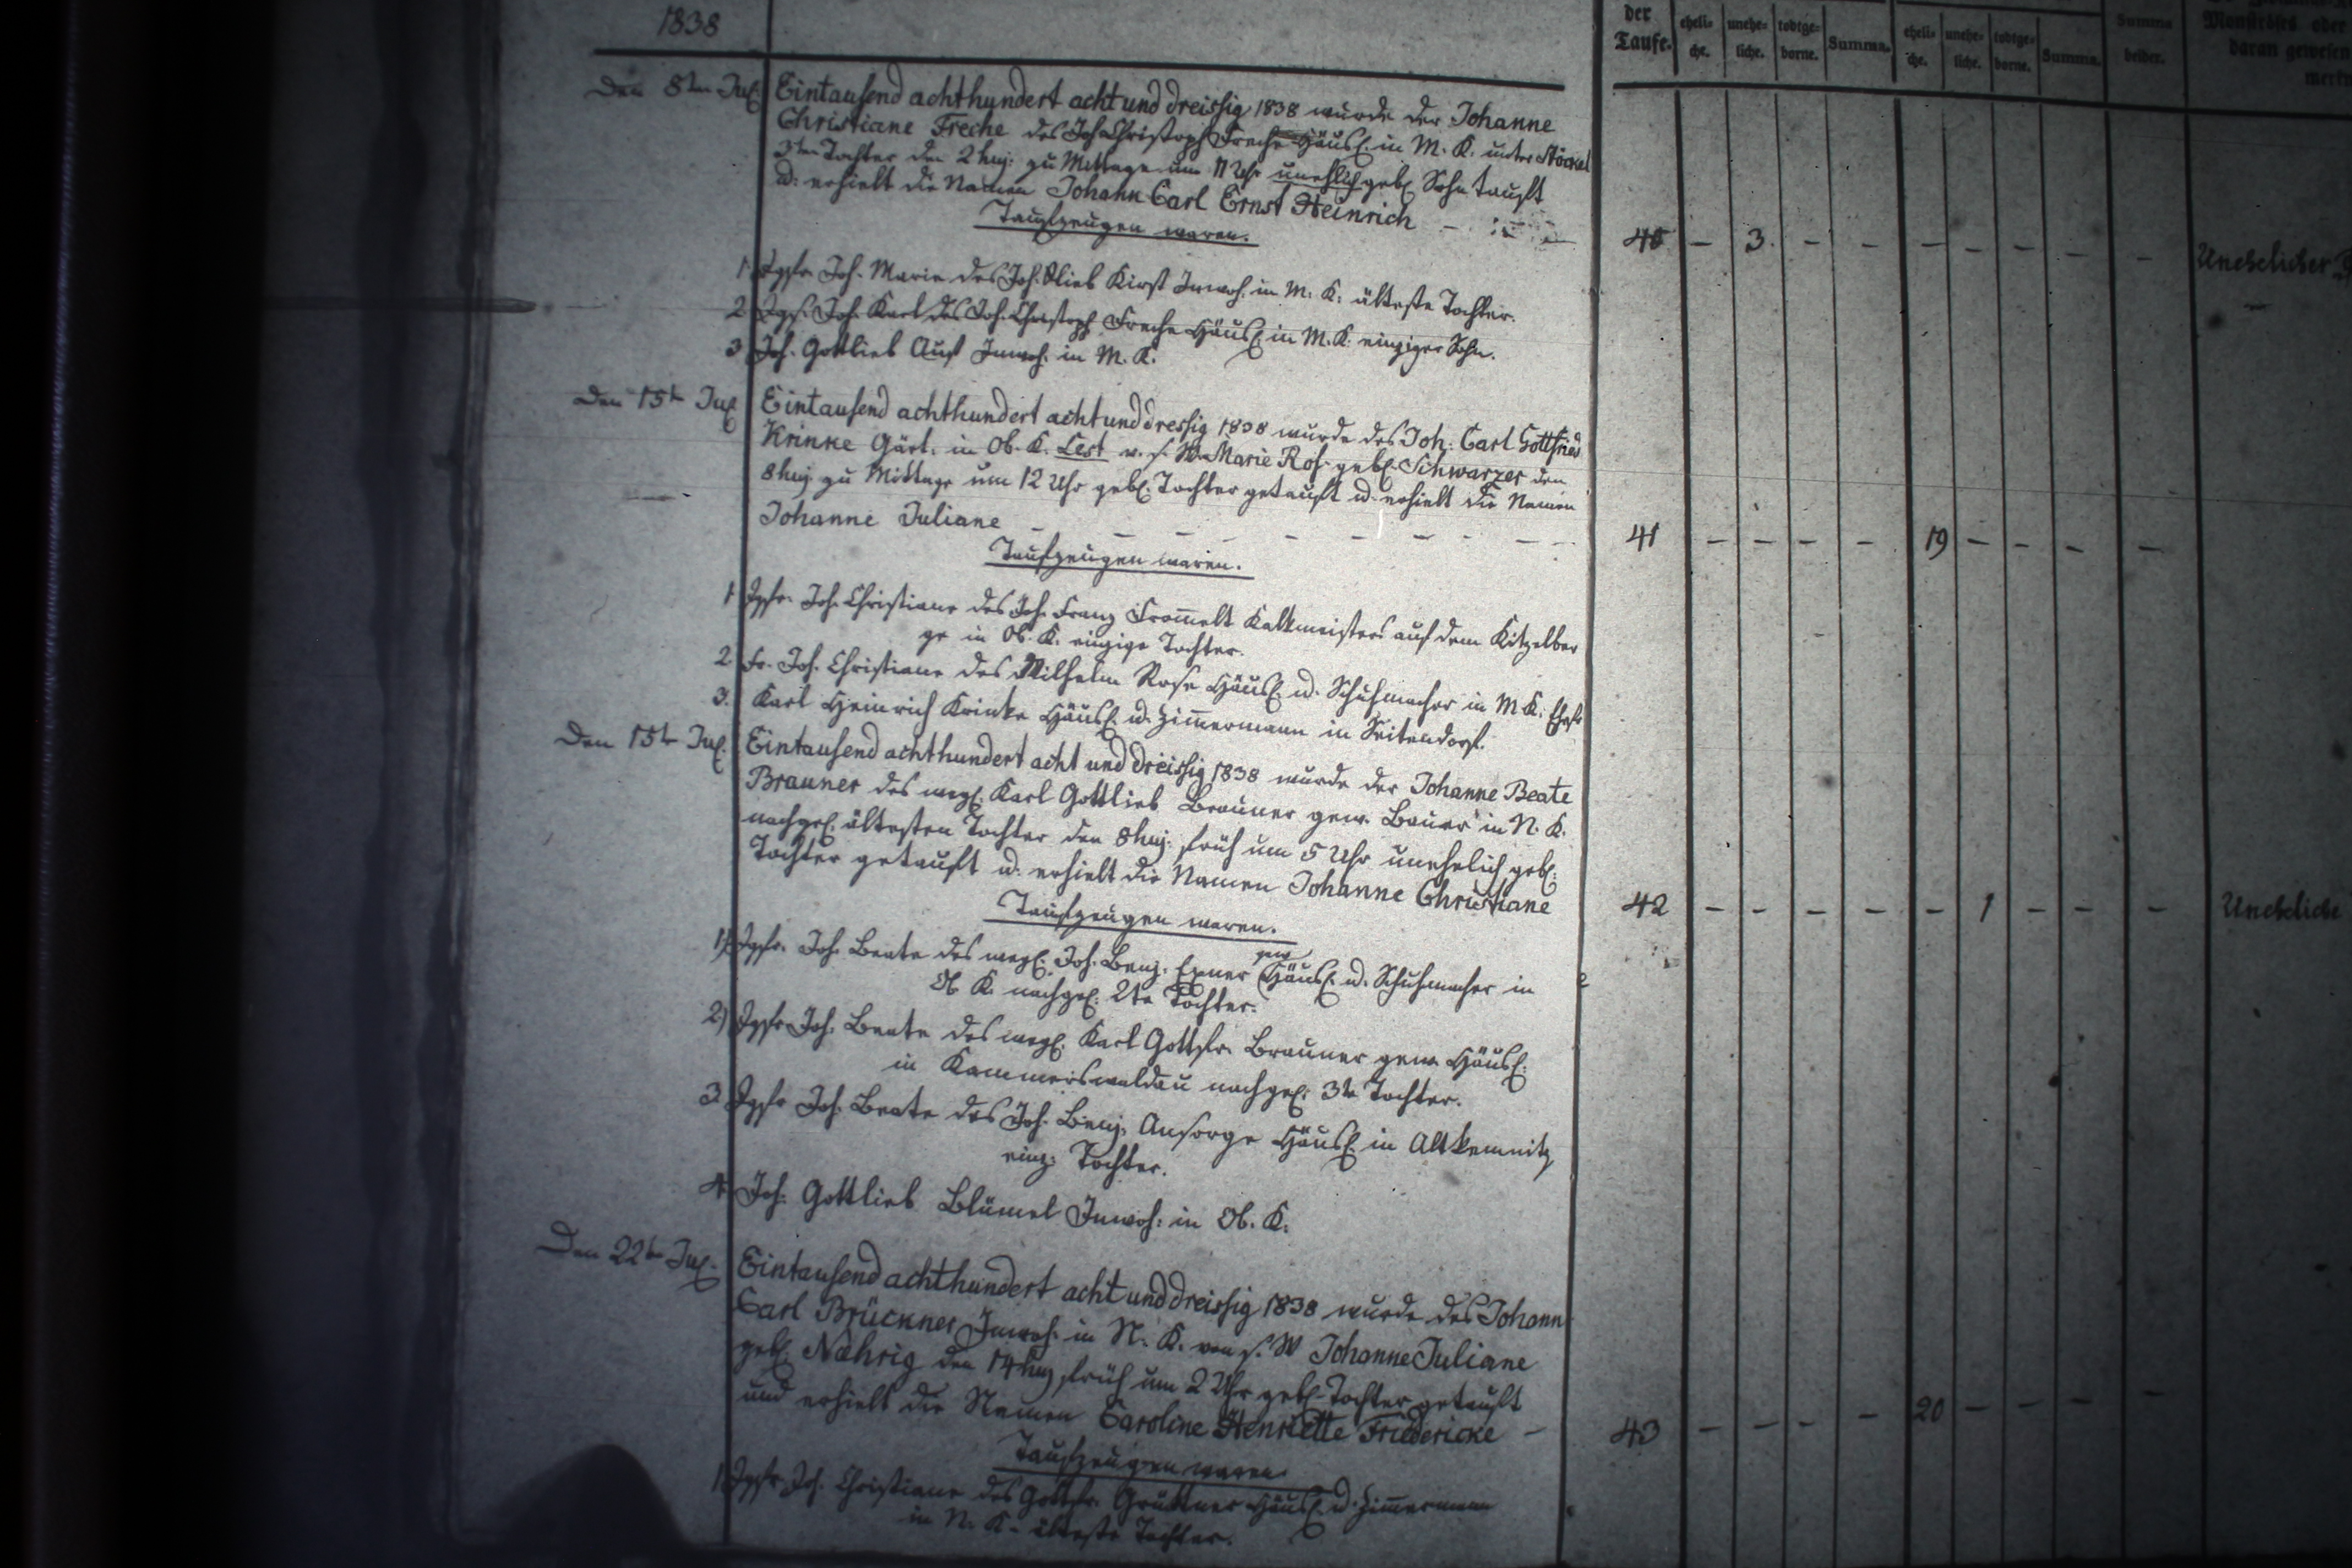 1838
der
Taufe.
eheli=
che.
unehe=
liche.
todtge=
borne.
Summa.
eheli=
che.
unehe=
liche.
todtge=
borne.
Summa.
Summa
beider.
Monströses oder
daran gewesen
merk
Den 8ten Jul. Eintausend achthundert acht und dreissig 1838 wurde der Johanne
Christiane Freche des Joh. Christoph Freche Häusl. in M. K. unter Stöckel
3ten Tochter den 2 huj. zu Mittage um 11 Uhr unehlich geb. Sohn tauft
u. erhielt die Namen Johann Carl Ernst Heinrich
Taufzeugen waren.
40 – 3. – – – – – – – Unehelicher
1 Jgfr. Joh. Marie des Joh. Glieb Kirst Inwoh. in M. K. älteste Tochter.
2 Jgs. Joh. Karl des Joh. Christoph Freche Häusl. in M. K. einziger Sohn.
3 Joh. Gottlieb Aust Inwoh. in M. K.
Den 15te Jul. Eintausend achthundert acht und dressig 1838 wurde des Joh. Carl Gottfried
Krinke Gärt. in Ob. K. Lest v. s. W. Marie Ros. geb. Schwarzer den
8 huj. zu Mittage um 12 Uhr geb. Tochter getauft u. erhielt die Namen
Johanne Juliane – – – – – – – –
Taufzeugen waren.
41 – – – – 19 – – – –
1 Jgfr. Joh. Christiane des Joh. Franz From̅elt Kalkmeisters auf dem Kitzelber
ge in Ob. K. einzige Tochter.
2. Fr. Joh. Christiane des Wilhelm Rose Häusl. u. Schuhmacher in M K. Ehefr
3. Karl Heinrich Krinke Häusl. u. Zim̅ermann in Seitendorf.
Den 15te Jul. Eintausend achthundert acht und dreissig 1838 wurde der Johanne Beate
Brauner des weyl. Karl Gottlieb Brauner gew. Bauer in N. K.
nachgel. ältesten Tochter den 8 huj. früh um 5 Uhr unehelich geb.
Tochter getauft u. erhielt die Namen Johanne Christiane
Taufzeugen waren.
42 – – – – – 1 – – – Uneheliche
1) Jgfr. Joh. Beate des weyl. Joh. Benj. Exner gew. Häusl. u. Schuhmacher in
Ob K. nachgel. 2te Tochter.
2) Jgfr Joh. Beate des weyl. Karl Gottfr. Brauner gew. Häusl.
in Kammerswaldau nachgel. 3te Tochter.
3 Jgfr Joh. Beate des Joh. Benj. Ansorge Häusl. in Altkemnitz
einz. Tochter.
4 Joh. Gottlieb Blümel Inwoh. in Ob. K.
Den 22te Jul. Eintausend achthundert acht und dreissig 1838 wurde des Johann
Carl Brückner Inwoh. in N. K. von s. W Johanne Juliane
geb. Nährig den 14 huj früh um 2 Uhr geb. Tochter getauft
und erhielt die Namen Caroline Henriette Friedericke –
43 – – – – 20 – – – –
Taufzeugen waren
1 Jgfr Joh. Christiane des Gottfr. Grüttner Häusl. u. Zim̅ermann
in N. K. älteste Tochter.